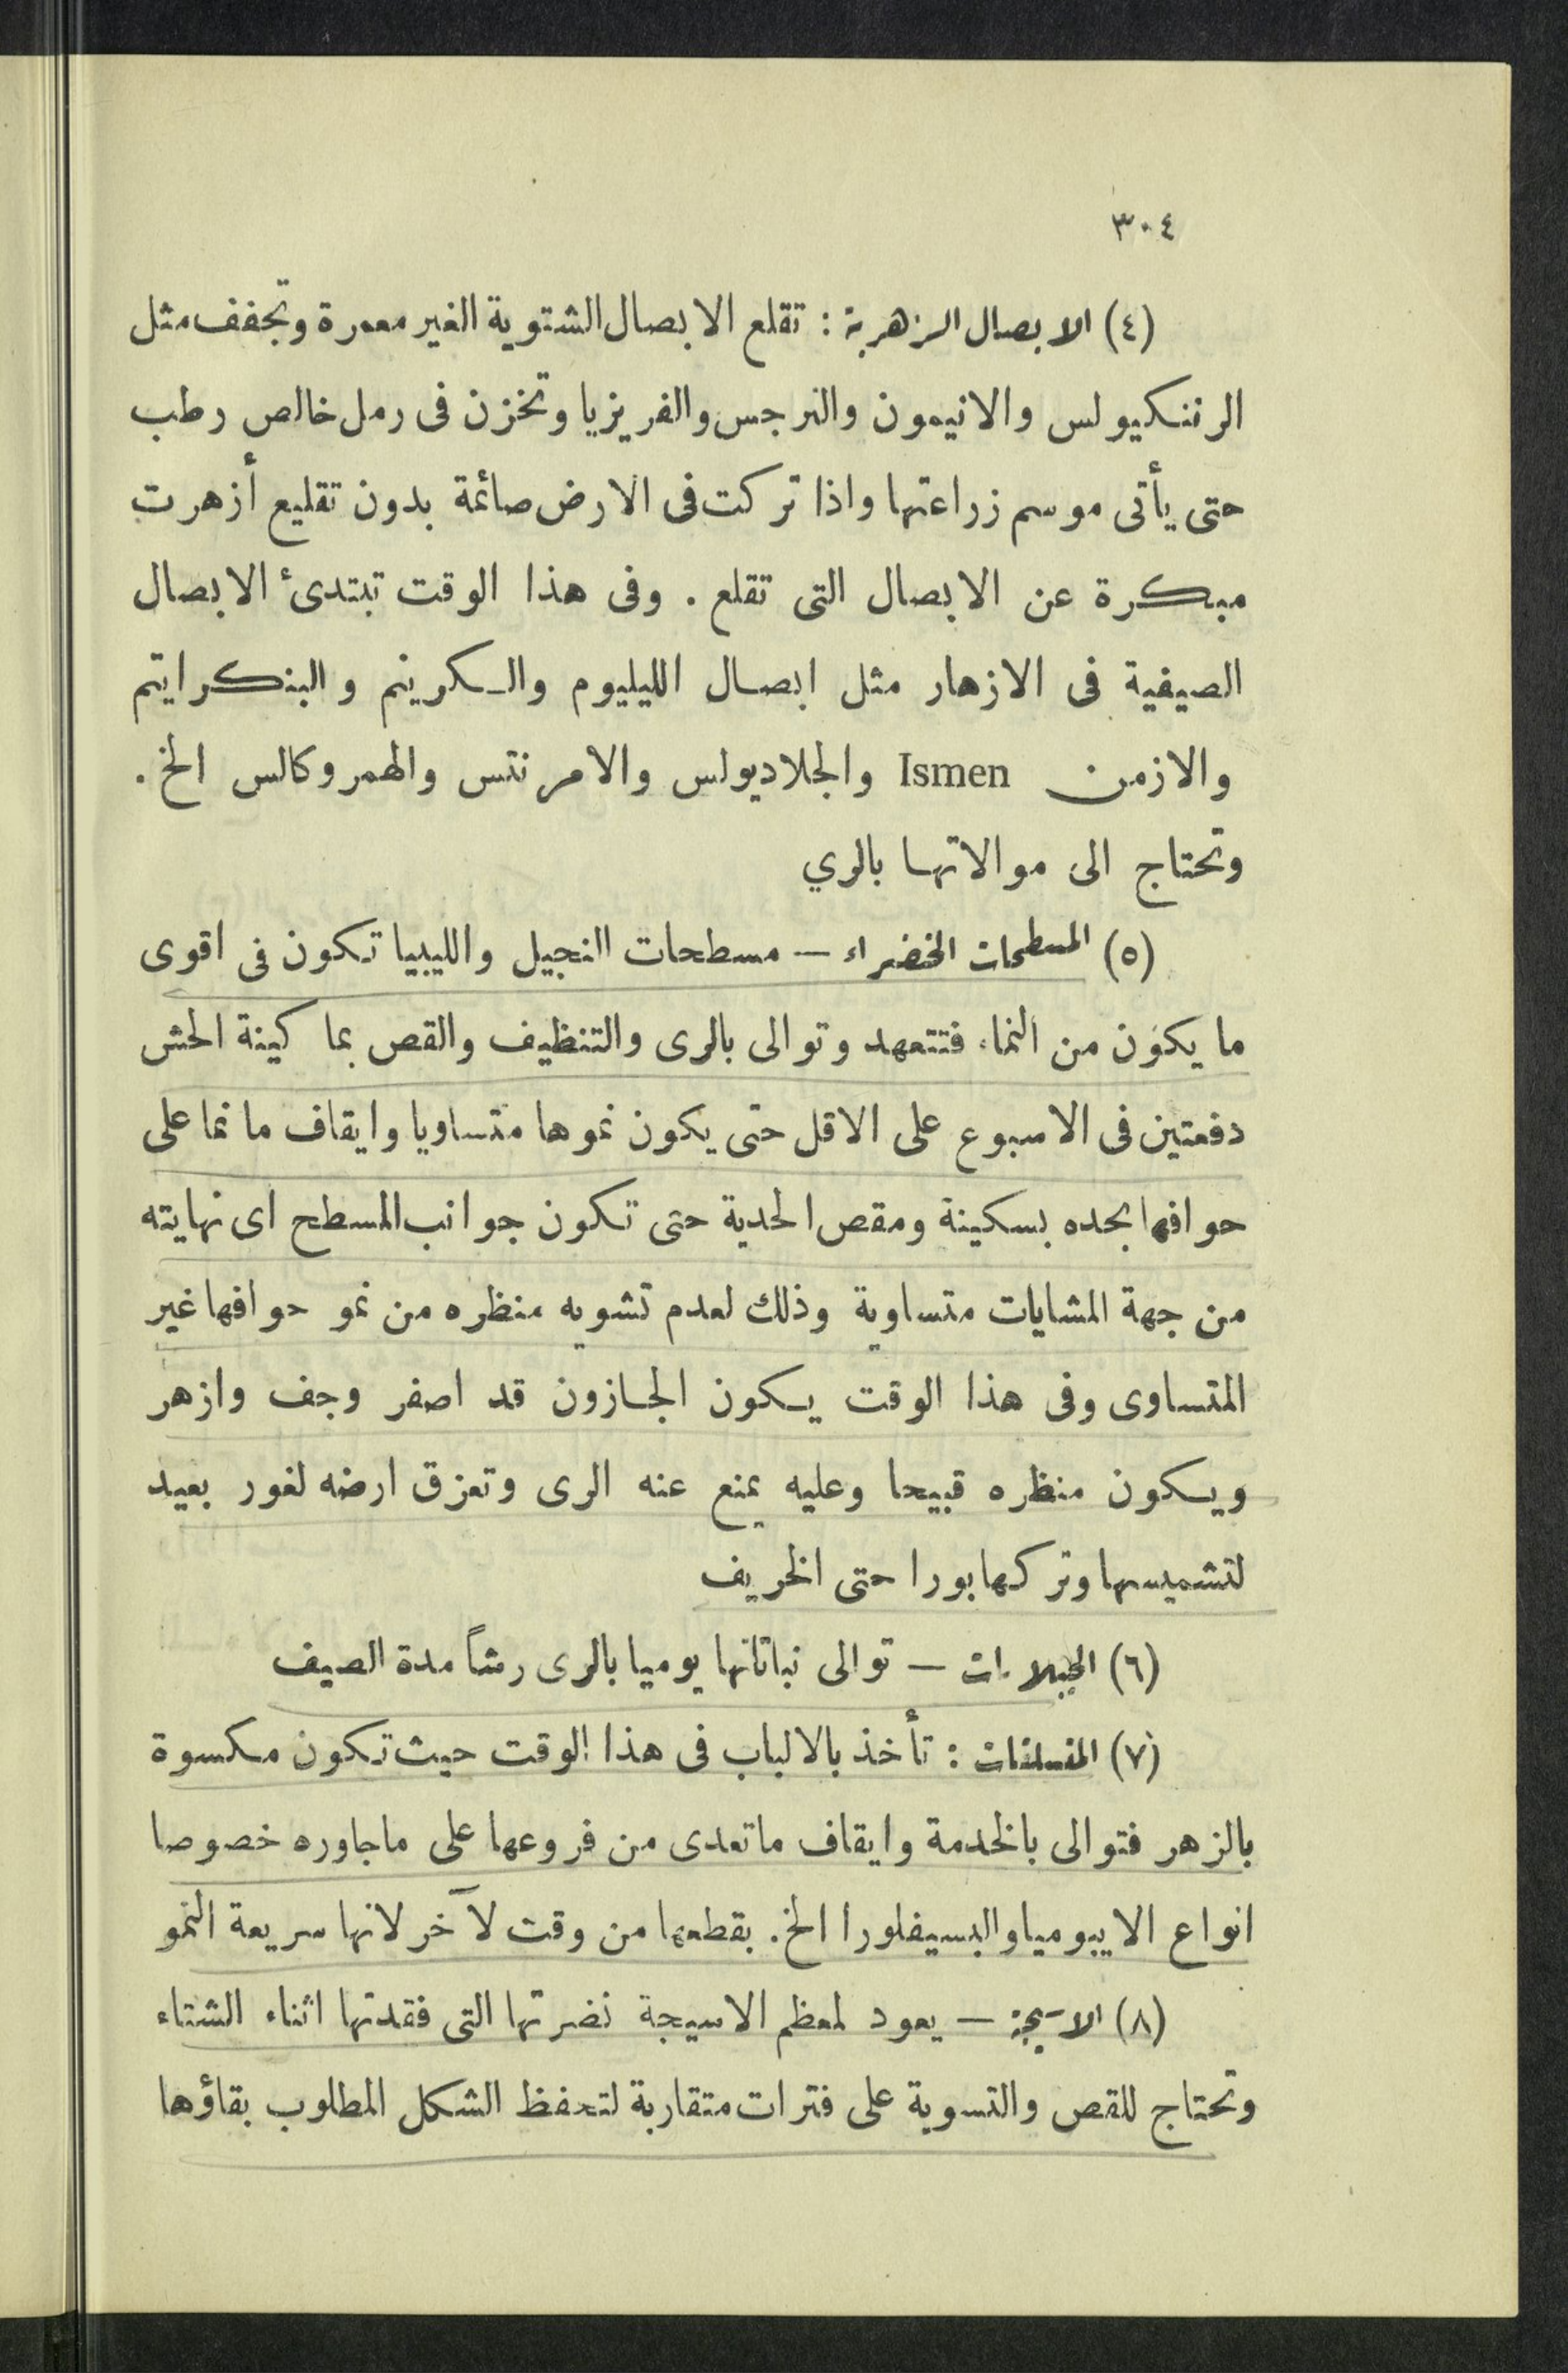 ٣٠٤
(٤) الابصال الزهرية : تقلع الابصال الشتوية الغير معمرة وتجفف مثل
الرننكيولس والانيمون والنرجس والفريزيا وتخزن فى رمل خالص رطب
حتى يأتى موسم زراعتها واذا تركت فى الارض صائمة بدون تقليع أزهرت
مبكرة عن الابصال التى تقلع . وفى هذا الوقت تبتدىء الابصال
الصيفية فى الازهار مثل ابصال الليليوم والكرينم والبنكراتيم
والازمن Ismen والجلاديولس والامرنتس والهمروكالس الخ .
وتحتاج الى موالاتها بالري
(٥) المسطحات الخضراء — مسطحات النجيل والليبيا تكون فى اقوى
ما يكون من النماء فتتعهد وتوالى بالرى والتنظيف والقص بما كينة الحش
دفعتين فى الاسبوع على الاقل حتى يكون نموها متساويا وايقاف ما نما على
حوافها بحده بسكينة ومقص الحدية حتى تكون جوانب المسطح اى نهايته
من جهة المشايات متساوية وذلك لعدم تشويه منظره من نمو حوافها غير
المتساوى وفى هذا الوقت يكون الجازون قد اصفر وجف وازهر
ويكون منظره قبيحا وعليه يمنع عنه الرى وتعزق ارضه لغور بعيد
لتشميسها وتركها بورا حتى الخريف
(٦) الجبلايات — توالى نباتاتها يوميا بالرى رشاً مدة الصيف
(٧) المتسلقات : تأخذ بالالباب فى هذا الوقت حيث تكون مكسوة
بالزهر فتوالى بالخدمة وايقاف ماتعدى من فروعها على ماجاوره خصوصا
انواع الايبوميا والبسيفلورا الخ . بقطعها من وقت لآخر لانها سريعة النمو
(٨) الاسيجة — يعود لمعظم الاسيجة نضرتها التى فقدتها اثناء الشتاء
وتحتاج للقص والتسوية على فترات متقاربة لتحفظ الشكل المطلوب بقاؤها